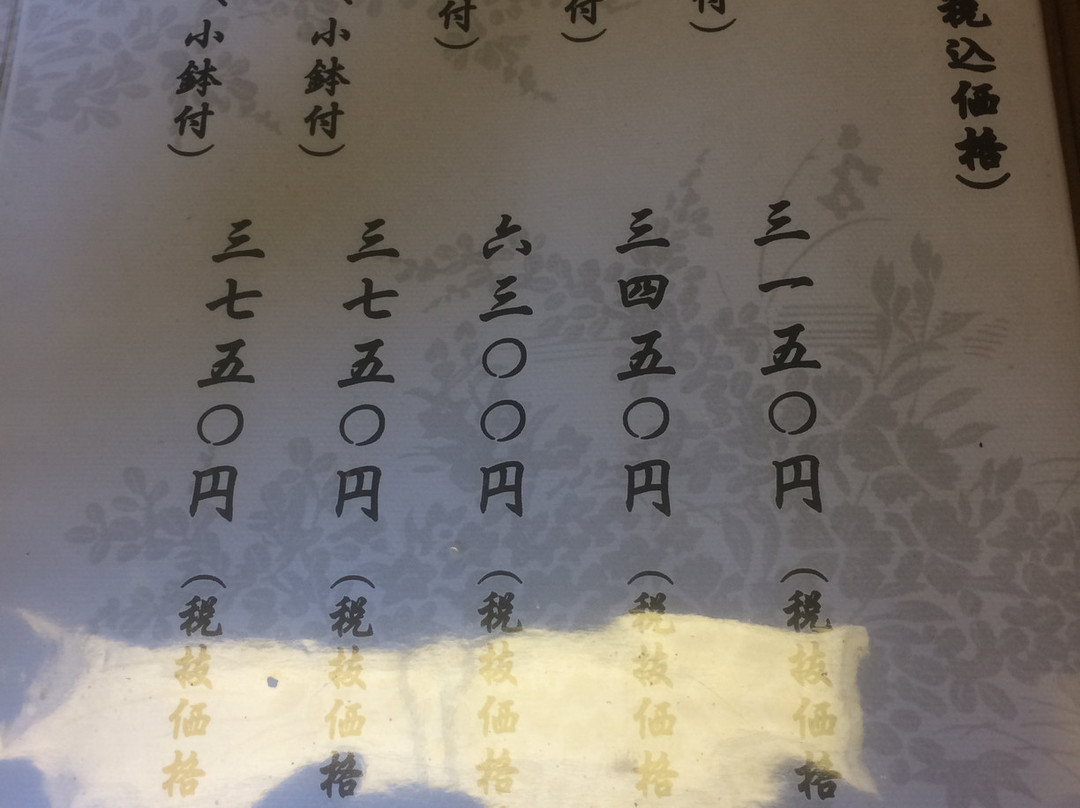 税込価格）
付）
三一五〇円（税抜価格
付）
三四五〇円（税抜価格
付）
六三〇〇円（税抜価格
小鉢付）
三七五〇円（税抜価格
小鉢付）
三七五〇円（税抜価格